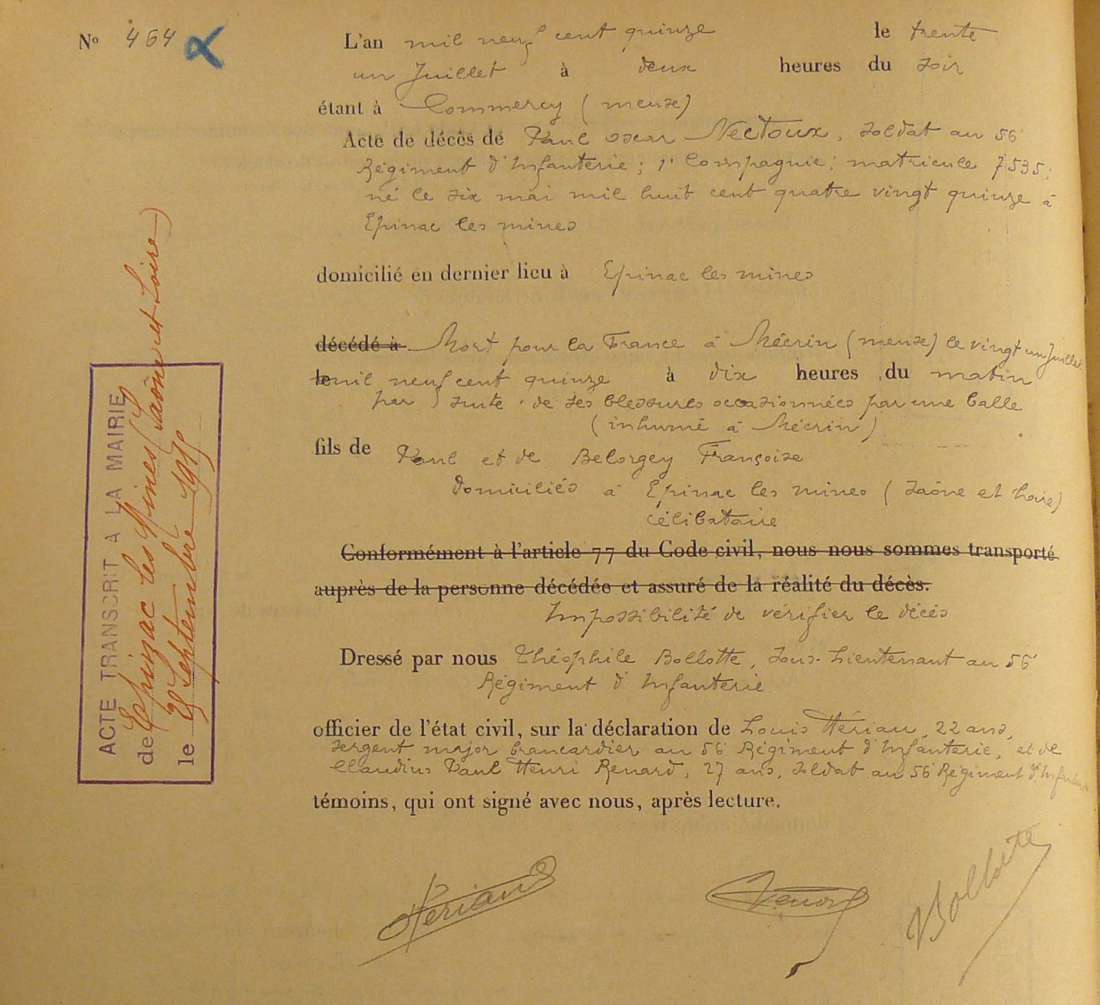 N° 464
L'an mil neuf cent quinze le trente
un Juillet à deux heures du soir
étant à Commercy (meuse)
Acte de décès de Paul oscar Nectoux, soldat au 56
Régiment d'Infanterie; 1e Compagnie; matricule 7535;
né le six mai mil huit cent quatre vingt quinze à
Epinac les mines
domicilié en dernier lieu à Epinac les mines
décédé à Mort pour la France à Mécrin (meuse) le vingt un Juillet
le mil neuf cent quinze à dix heures du matin
par suite de ses blessures occasionnées par une balle
(inhumé à Mécrin)
fils de Paul et de Belorgey Françoise
domiciliés à Epinac les mines (Saône et Loire)
célibataire
Conformément à l'article 77 du Code civil, nous nous sommes transporté
auprès de la personne décédée et assuré de la réalité du décès.
Impossibilité de vérifier le décès
Dressé par nous Théophile Bollotte, Sous-Lieutenant au 56
Régiment d'Infanterie
officier de l'état civil, sur la déclaration de Louis Hériau, 22 ans,
sergent major brancardier au 56 Régiment d'Infanterie, et de
Claudius Paul Henri Renard, 27 ans, soldat au 56 Régiment d'Infanterie
témoins, qui ont signé avec nous, après lecture.
Hériau Renard Bollotte
ACTE TRANSCRIT A LA MAIRIE
de Epinac les Mines (Saône et Loire)
le Septembre 1915